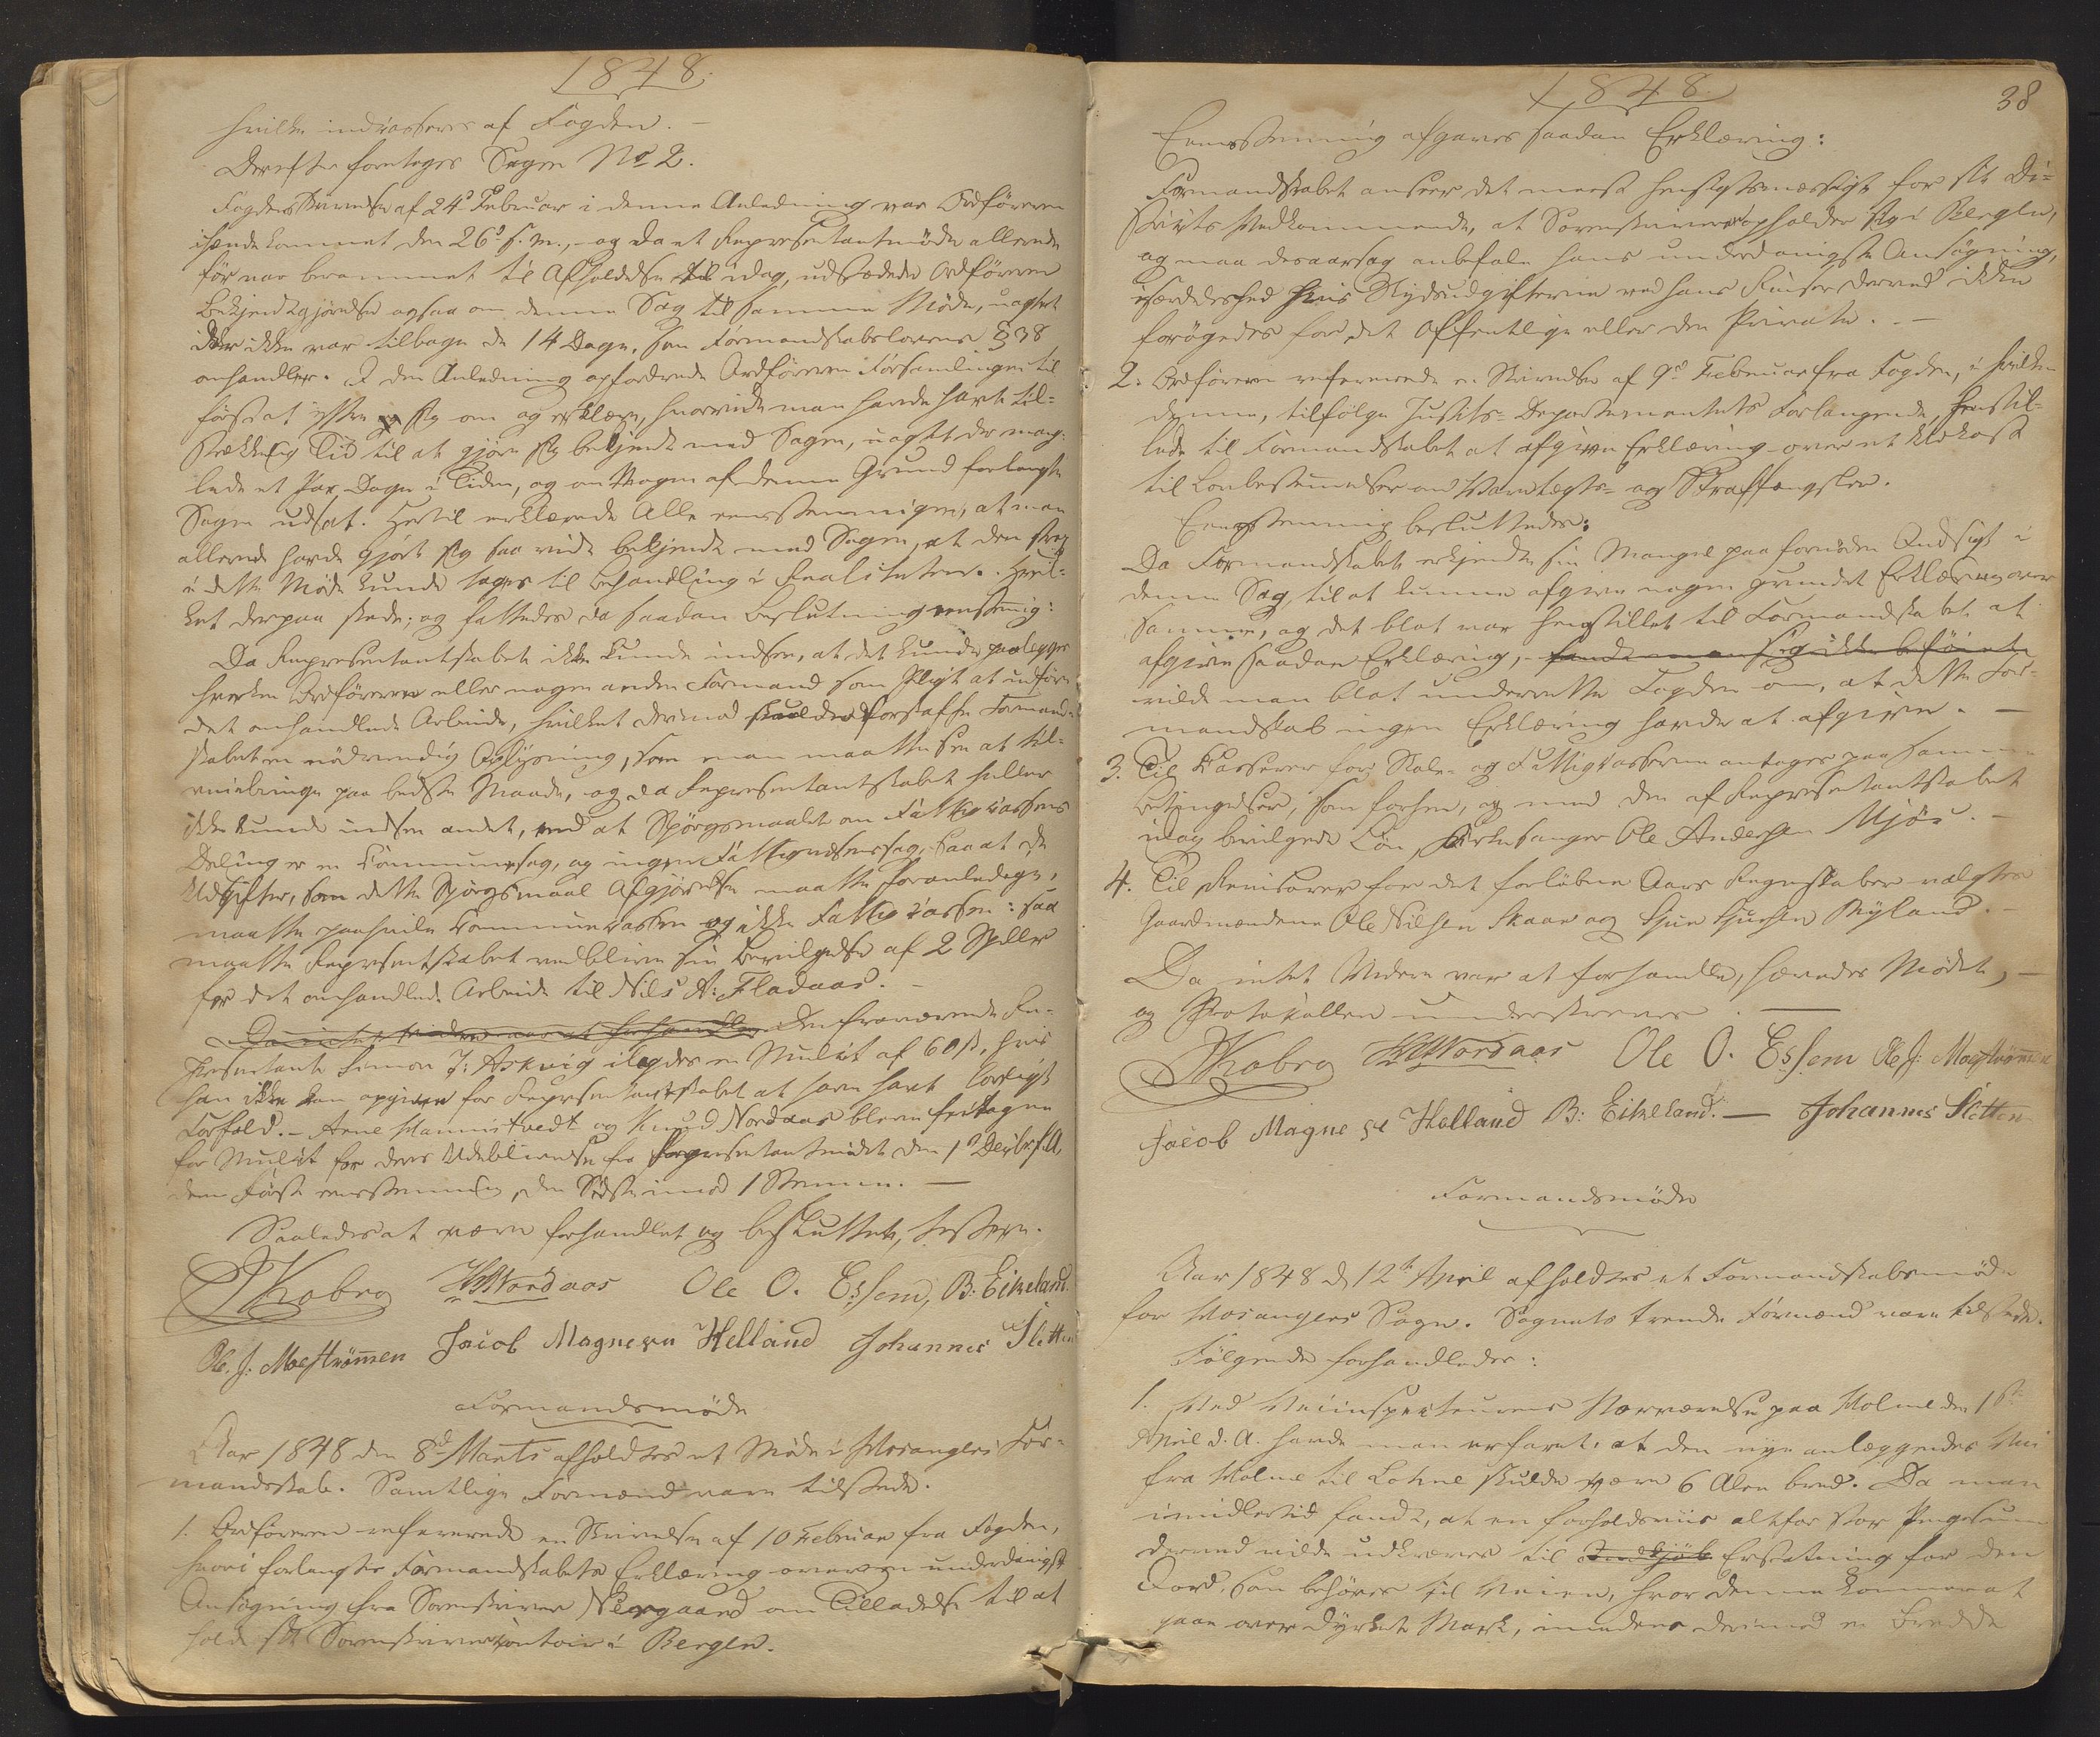 1848.
hvilke indkasseres af Fogden. –
Derefter foretoges Sagen No 2.
Fogdens Skrivelse af 24de Februar i denne Anledning var Ordføreren
ihænde kommet den 26de s. M., – og da et Repræsentantmøde allerede
før var berammet til Afholdelse til idag, udstædede Ordføreren
Bekjendtgjørelse ogsaa om denne Sag til samme Møde, uagtet
der ikke var tilbage de 14 Dage, som Formandskabslovens § 38
omhandler. I den Anledning opfordrede Ordføreren Forsamlingen til
først at yttre sig om og erklære, hvorvidt man havde havt til-
strækkelig Tid til at gjøre sig bekjendt med Sagen, uagtet der mang-
lede et Par Dage i Tiden, og om Nogen af denne Grund forlangte
Sagen udsat. Hertil erklærede Alle eenstemmigen, at man
allerede havde gjort sig saa vidt bekjendt med Sagen, at den strax
i dette Møde kunde tages til Behandling i Realiteten. Hvil-
ket derpaa skede; og fattedes da saadan Beslutning eenstemmig:
Da Repræsentantskabet ikke kunde indsee, at det kunde paalegges
hverken Ordføreren eller nogen anden Formand som Pligt at udføre
det omhandlede Arbeide, hvilket derimod skulde forskaffe Formand-
skabet en nødvendig Oplysning, som man maatte see at til-
veiebringe paa bedste Maade, og da Repræsentantskabet heller
ikke kunde indsee andet, end at Spørgsmaalet om Fattigkassens
Deling er en Communesag, og ingen Fattigvæsenssag, saa at de
Udgifter, som dette Spørgsmaal Afgjørelse maatte foranledige,
maatte paahvile Communekassen og ikke Fattigkassen: saa
maatte Repræsentskabet vedblive sin Bevilgelse af 2 Spdlr
for det omhandlede Arbeide til Nils A: Fladaas. –
Da intet videre var at forhandle Den fraværende Re-
præsentant Simon J: Askvig ilagdes en Mulct af 60 s, hvis
han ikke kan opgive for Repræsentantskabet at have havt lovligt
Forfald. – Arne Mannistvedt og Knud Nordaas bleve fritagne
for Mulct for deres Udeblivelse fra Repræsentantmødet den 1ste Decbr f. A,
den Første eenstemmig, den Sidste imod 1 Stemme. –
Saaledes at være forhandlet og besluttet, testeres.
JKobro HNordaas Ole O. Essem, B: Eikeland.
Ole. J: Molstrømmen Jacob Magnesen Helland Johannes Sletten
Formandsmøde
Aar 1848 den 8de Marts afholdtes et Møde i Hosangers For-
mandskab. Samtlige Formænd vare tilstede.
1. Ordføreren refererede en Skrivelse af 10 Februar fra Fogden,
hvori forlangtes Formandskabets Erklæring over en underdanigst
Ansøgning fra Sorenskriver Neergaard om Tilladelse til at
holde sit Sorenskrivercontoir i Bergen.
1848. 38
Eenstemmig afgaves saadan Erklæring:
Formandskabet anseer det meest hensigtsmæssigt for sit Di-
strikts Vedkommende, at Sorenskriveren opholder sig i Bergen,
og maa desaarsag anbefale hans underdanigste Ansøgning,
isærdeleshed hvis Skydsudgifterne ved hans Reiser derved ikke
forøgedes for det Offentlige eller den Private. –
2. Ordføreren refererede en Skrivelse af 9de Februar fra Fogden, i hvilken
denne, tilfølge Justits-Departementets Forlangende, henstil-
lede til Formandskabet at afgive Erklæring over et Udkast
til Lovbestemmelser om Varetægts- og Straffængsler.
Eenstemmig besluttedes:
Da Formandskabet erkjendte sin Mangel paa fornøden Indsigt i
denne Sag, til at kunne afgive nogen grundet Erklæring over
samme, og det blot var henstillet til Formandskabet at
afgive saadan Erklæring, – fandt man sig ikke beføiet
vilde man blot underrette Fogden om, at dette For-
mandskab ingen Erklæring havde at afgive. –
3. Til Kasserer for Skole- og Fattigkasserne antoges paa samme
Betingelser, som forhen, og med den af Repræsentantskabet
idag bevilgede Løn, Kirkesanger Ole Andersen Mjøs. –
4. Til Revisorer for det forløbne Aars Regnskaber valgtes
Gaardmændene Ole Nilsen Skaar og Siur Siursen Byland. –
Da intet Videre var at forhandle, hævedes Mødet, –
og Protokollen underskreves. –
JKobro HNordaas Ole O. Essem Ole J: Molstrømmen
Jacob Magne se Helland B: Eikeland. – Johannes Sletten
Formandsmøde
Aar 1848 d 12te April afholdtes et Formandskabsmøde
for Hosangers Sogn. Sognets trende Formænd vare tilstede.
Følgende forhandledes:
1. Ved Veiinspecteurens Nærværelse paa Holme den 1ste
April d. A. havde man erfaret, at den nye anlæggendes Vei
fra Holme til Lohne skulde være 6 Alen bred. Da man
imidlertid fandt, at en forholdsviis altfor stor Pengesum
derved vilde udkræves til Indkjøb Erstatning for den
Jord, som behøves til Veien, hvor denne kommer at
gaae over dyrket Mark, imedens derimod en Bredde